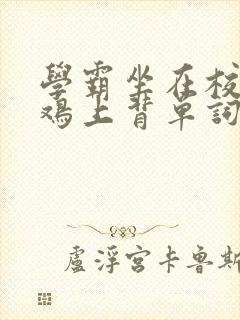 學霸坐在校
鴻上背單詞
盧浮宮卡魯斯